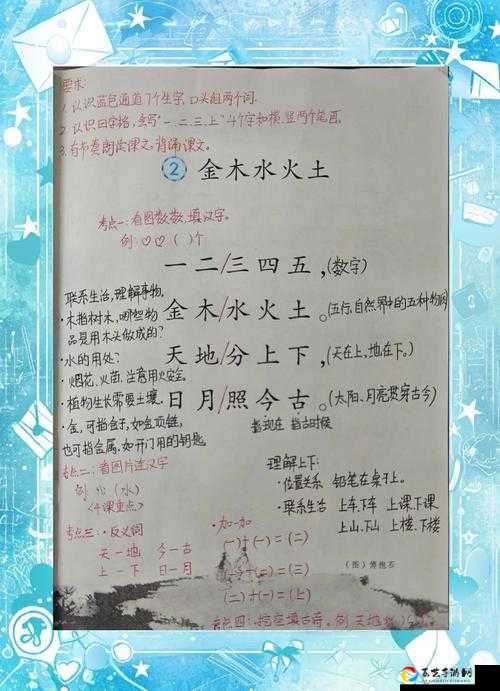 要求:
1. 认识蓝色通道7个生字,口头组两个词.
2. 认识田字格,会写“一、二、三、上”4个字和横、竖两个笔画.
3. 有节奏朗读课文,背诵课文.
② 金木水火土
考点一:看图数数,填汉字。
例:♡♡ ( )个
一二/三四五,(数字)
联系生活,理解事物.
金木/水火土。(五行,自然界中的五种物质)
·木指树木,哪些物品是用木头做成的?
·水的用处?
天地/分上下,(天在上,地在下。)
·烟花,火苗,注意用火安全.
·植物生长需要土壤.
日月/照今古。(太阳、月亮贯穿古今)
指现在 指古时候
·金,可指金子,如金项链,
也可指金属,如开门用的钥匙.
考点二:看图片连汉字
例 (水)
<4课重点>
理解上下:
·位置关系 铅笔在桌子上。
·联系生活 上车、下车 上课、下课
上山、下山 上楼、下楼
考点三:·反义词
天—地 今—古
上—下 日—月
·加一加
(一)+(一)=(二)
(一)+(二)=(三)
(二)+(一)=(上)
(图)傅抱石
考点四:按空填古诗。例 天地